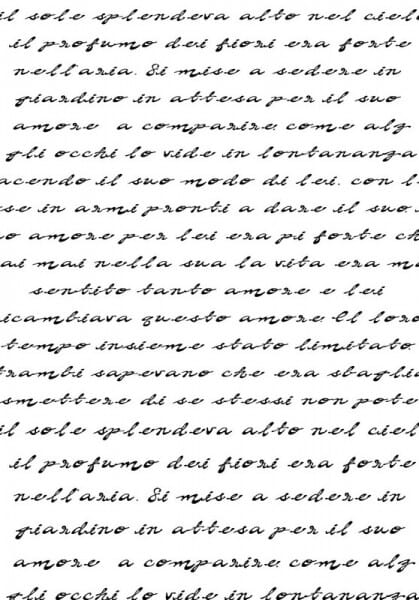 il sole splendeva alto nel ciel
il profumo dei fiori era forte
nell'aria. Si mise a sedere in
giardino in attesa per il suo
amore a comparire come alg
gli occhi lo vide in lontananza
acendo il suo modo di lei. con l
se in armi pronti a dare il suo.
o amore per lei era pi forte ch
ai mai nella sua la vita era m
sentito tanto amore e lei
icambiava questo amore Il loro
tempo insieme stato limitato.
trambi sapevano che era sbaglia
smettere di se stessi non pote
il sole splendeva alto nel ciel
il profumo dei fiori era forte
nell'aria. Si mise a sedere in
giardino in attesa per il suo
amore a comparire come alg
gli occhi lo vide in lontananza